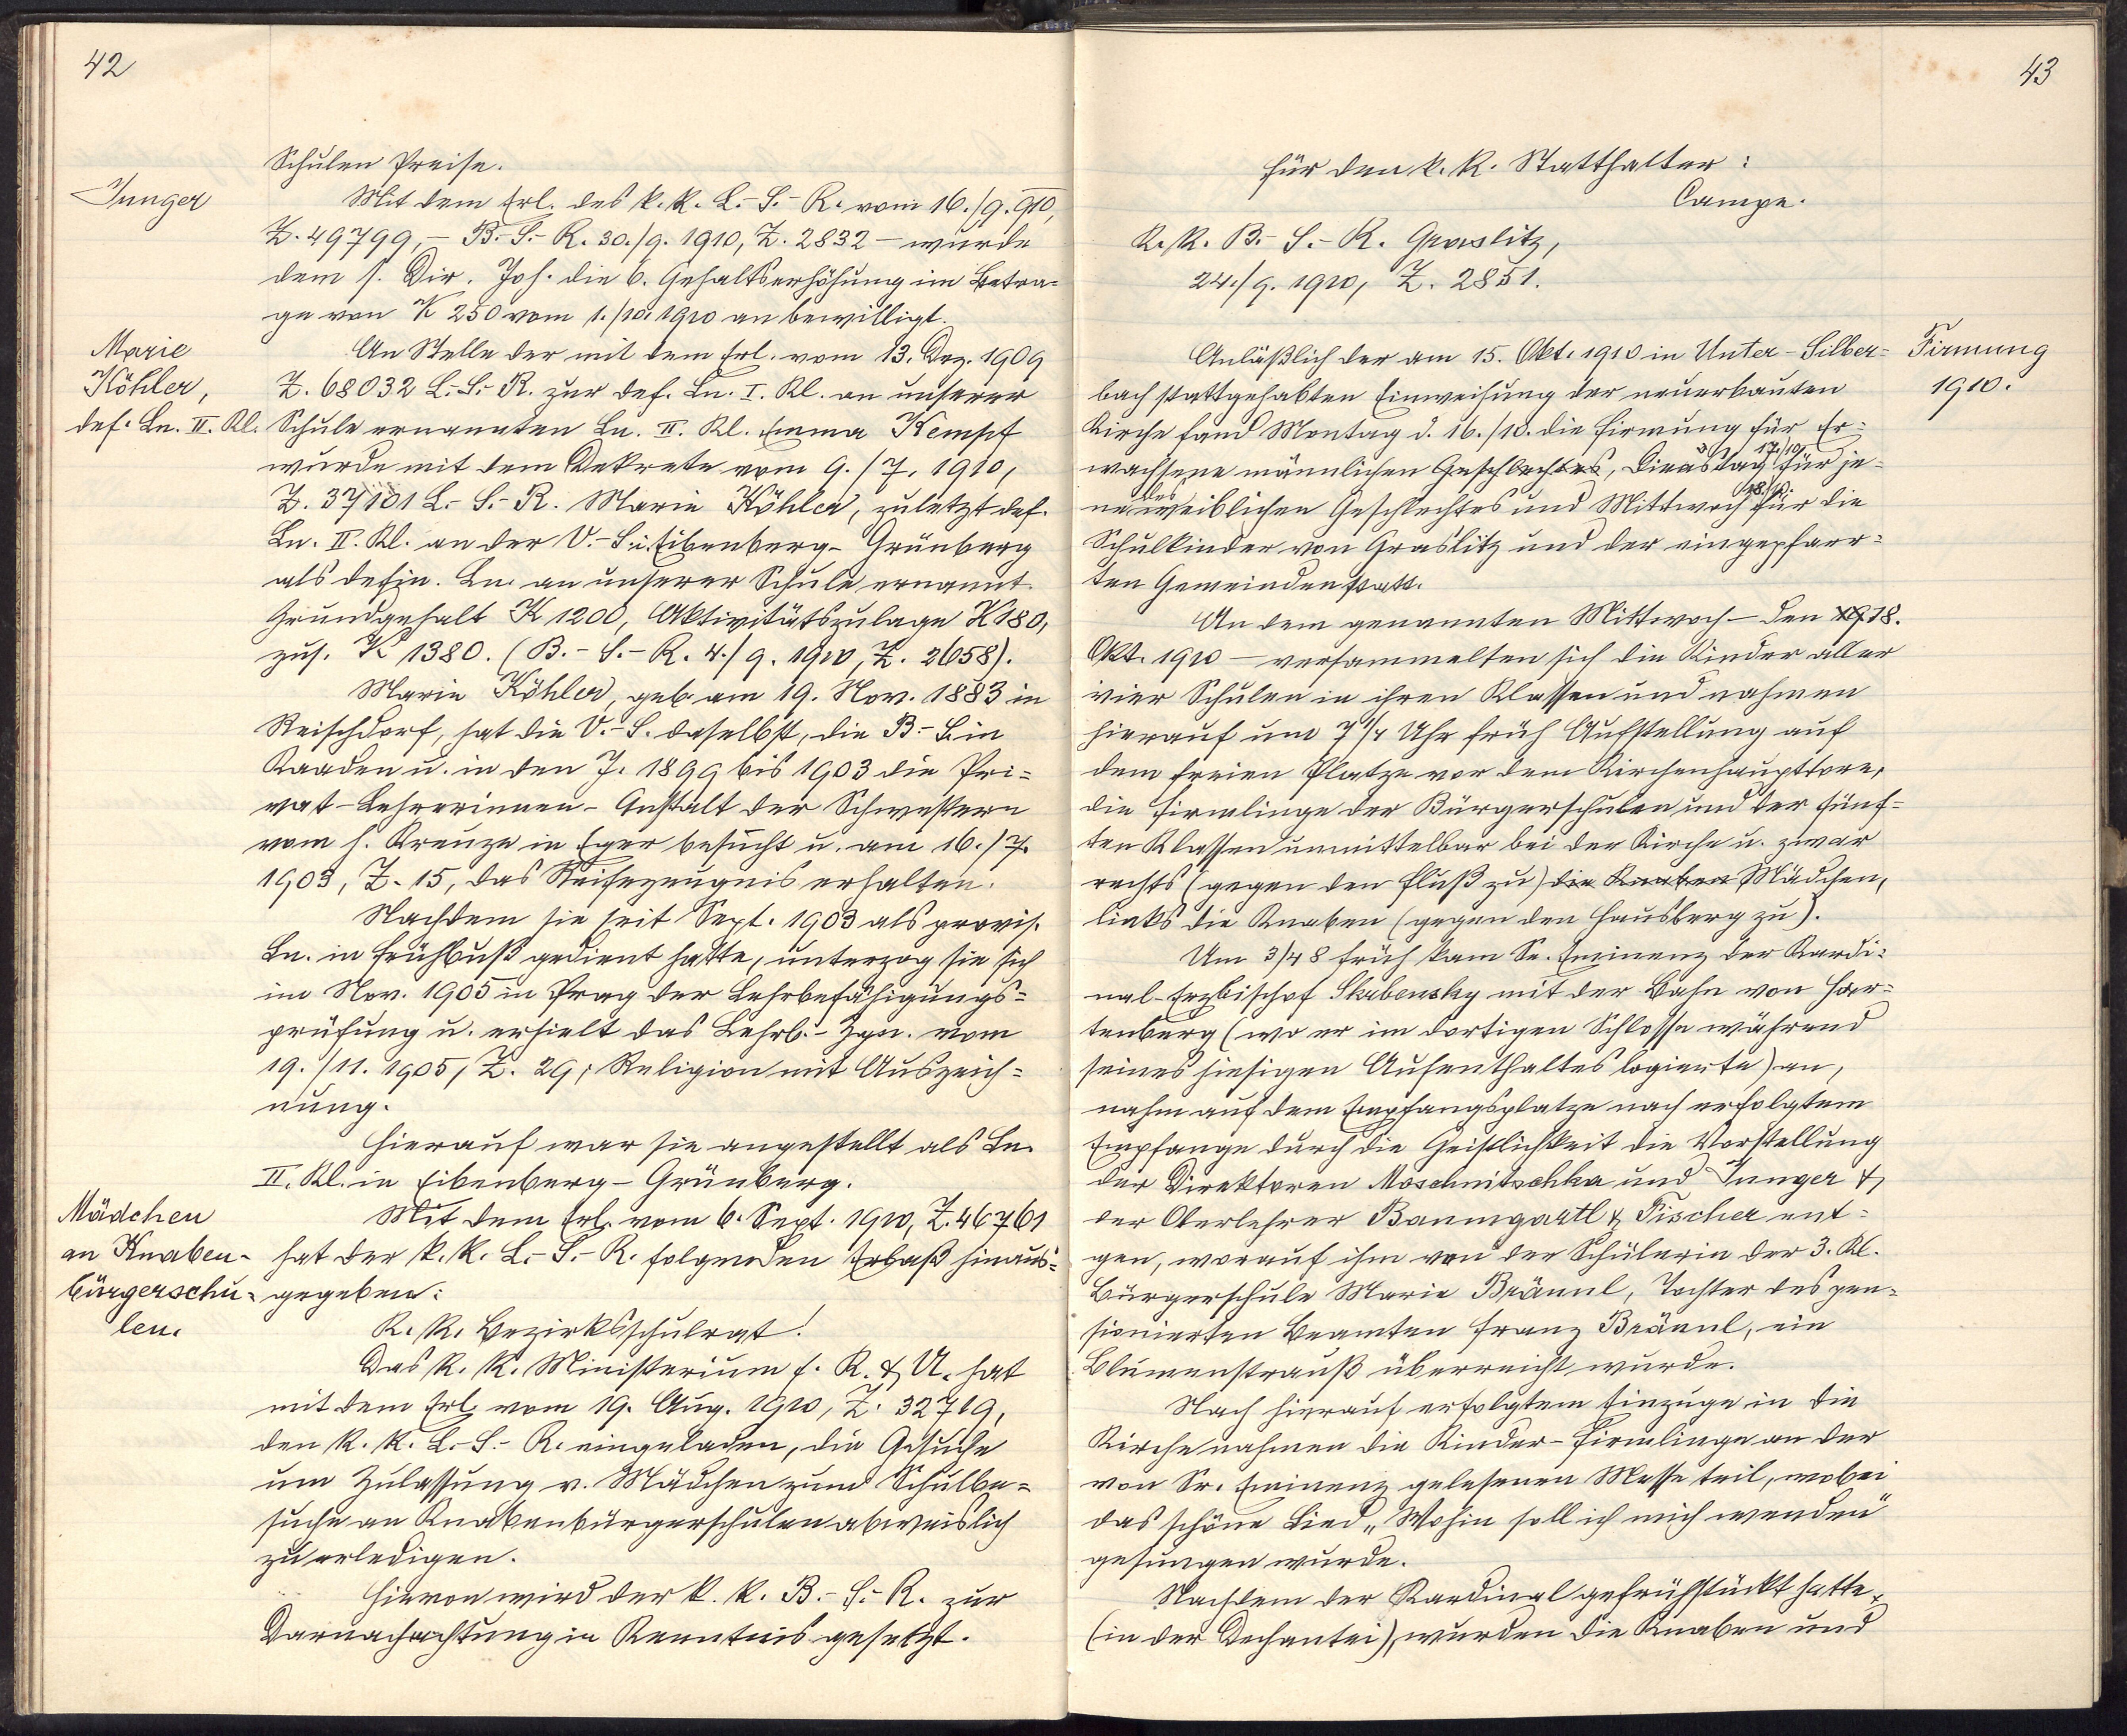 42
Schulen Preise.
Junger
Mit dem Erl. des k. k. L.-S.-R. vom 16./9. 910,
Z. 49799, – B.-S.-R. 30./9. 1910, Z. 2832 – wurde
dem s. Dir. Jos. die 6. Gehaltserhöhung im Betra=
ge von K 250 vom 1./10. 1910 an bewilligt.
Marie
Köhler,
def. Ln. II. Kl.
An Stelle der mit dem Erl. vom 13. Dez. 1909
Z. 68032 L.-S.-R. zur def. Ln. I. Kl. an unserer
Schule ernannten Ln. II. Kl. Emma Kempf
wurde mit dem Dekrete vom 9./7. 1910,
Z. 37101 L.-S.-R. Marie Köhler, zuletzt def.
Ln. II. Kl. an der V.-S. i. Eibenberg-Grünberg
als defin. Ln. an unserer Schule ernannt.
Grundgehalt K 1200, Aktivitätszulage K 180,
zus. K 1380. (B.-S.-R. 4./9. 1910, Z. 2658).
Marie Köhler, geb. am 19. Nov. 1883 in
Reischdorf, hat die V.-S. daselbst, die B.-S. in
Kaaden u. in den J. 1899 bis 1903 die Pri=
vat-Lehrerinnen-Anstalt der Schwestern
vom h. Kreuze in Eger besucht u. am 16./7.
1903, Z. 15, das Reifezeugnis erhalten.
Nachdem sie seit Sept. 1903 als provis.
Ln. in Frühbuß gedient hatte, unterzog sie sich
im Nov. 1905 in Prag der Lehrbefähigungs=
prüfung u. erhielt das Lehrb.-Zgn. vom
19./11. 1905, Z. 29; Religion mit Auszeich=
nung.
Hierauf war sie angestellt als Ln.
II. Kl. in Eibenberg-Grünberg.
Mädchen
an Knaben-
bürgerschu-
len.
Mit dem Erl. vom 6. Sept. 1910, Z. 46761
hat der k. k. L.-S.-R. folgenden Erlaß hinaus=
gegeben:
K. k. Bezirksschulrat!
Das k. k. Ministerium f. K. & U. hat
mit dem Erl. vom 19. Aug. 1910, Z. 32719,
den k. k. L.-S.-R. eingeladen, die Gesuche
um Zulassung v. Mädchen zum Schulbe=
suche an Knabenbürgerschulen abweislich
zu erledigen.
Hievon wird der k. k. B.-S.-R. zur
Darnachachtung in Kenntnis gesetzt.
43
Für den k. k. Statthalter:
Campe.
K. k. B.-S.-R. Graslitz,
24./9. 1910, Z. 2851.
Firmung
1910.
Anläßlich der am 15. Okt. 1910 in Unter-Silber=
bach stattgehabten Einweihung der neuerbauten
Kirche fand Montag d. 16./10. die Firmung für Er=
wachsene männlichen Geschlechtes, Dienstag 17./10. für je=
ne des weiblichen Geschlechtes und Mittwoch 18./10. für die
Schulkinder von Graslitz und der eingepfarr=
ten Gemeinden statt.
An dem genannten Mittwoch – den 18.
Okt. 1910 – versammelten sich die Kinder aller
vier Schulen in ihren Klassen und nahmen
hierauf um 7 1/4 Uhr früh Aufstellung auf
dem freien Platze vor dem Kirchenhaupttore,
die Firmlinge der Bürgerschulen und der fünf=
ten Klassen unmittelbar bei der Kirche u. zwar
rechts (gegen den Fluß zu) die Knaben Mädchen,
links die Knaben (gegen den Hausberg zu).
Um 3/4 8 früh kam Se. Eminenz der Kardi=
nal-Erzbischof Skrbensky mit der Bahn von Har=
tenberg (wo er im dortigen Schlosse während
seines hiesigen Aufenthaltes logierte) an,
nahm auf dem Empfangsplatze nach erfolgtem
Empfange durch die Geistlichkeit die Vorstellung
der Direktoren Moschnitschka und Junger &
der Oberlehrer Baumgartl & Fischer ent=
gen, worauf ihm von der Schülerin der 3. Kl.
Bürgerschule Marie Bräunl, Tochter des pen=
sionierten Beamten Franz Bräunl, ein
Blumenstrauß überreicht wurde.
Nach hierauf erfolgtem Einzuge in die
Kirche nahmen die Kinder-Firmlinge an der
von Sr. Eminenz gelesenen Messe teil, wobei
das schöne Lied „Wohin soll ich mich wenden"
gesungen wurde.
Nachdem der Kardinal gefrühstückt hatte,
(in der Dechantei), wurden die Knaben und